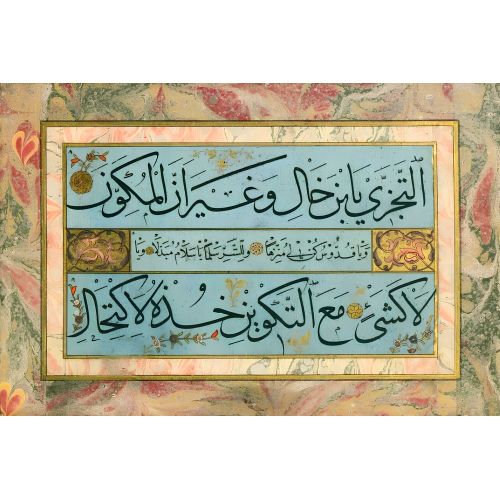 التجزي يابن خال وغيران المكون
ويا قدوس كن لي منزها وللشر سلما يا سلام مبدلا ويا
لا كشئ مع التكوين خذه لاكتحال